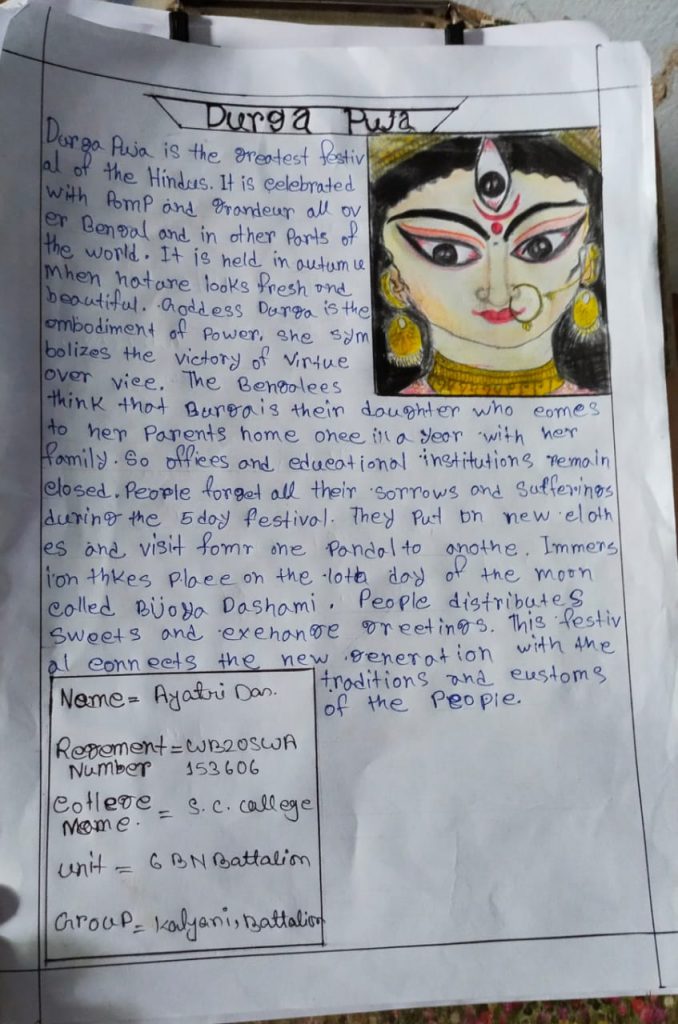 Durga Puja
Durga Puja is the greatest festiv
al of the Hindus. It is celebrated
with Pomp and grandeur all ov
er Bengal and in other Parts of
the world. It is held in autumn
when nature looks fresh and
beautiful. Goddess Durga is the
embodiment of Power. she sym
bolizes the victory of virtue
over vice. The Bengalees
think that Burga is their daughter who comes
to her Parents home once in a year with her
family. So offices and educational institutions remain
closed. People forget all their sorrows and sufferings
during the 5 day festival. They Put on new cloth
es and visit fomr one Pandal to anothe. Immers
ion thkes Place on the 10th day of the moon
called Bijoya Dashami. People distributes
sweets and exchange greetings. This festiv
al connects the new generation with the
traditions and customs
of the People.
Name = Ayatri Das.
Regement = WB20SWA
Number 153606
College = S.C. callege
Name.
unit = 6 BN Battalion
Group = Kalyani, Battalion